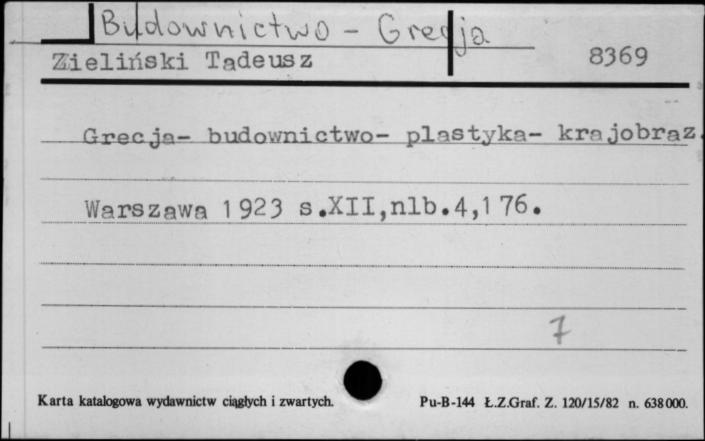 Budownictwo - Grecja
Zieliński Tadeusz 8369
Grecja- budownictwo- plastyka- krajobraz.
Warszawa 1923 s.XII,nlb.4,176.
7
Karta katalogowa wydawnictw ciągłych i zwartych. Pu-B-144 Ł.Z.Graf. Z. 120/15/82 n. 638000.